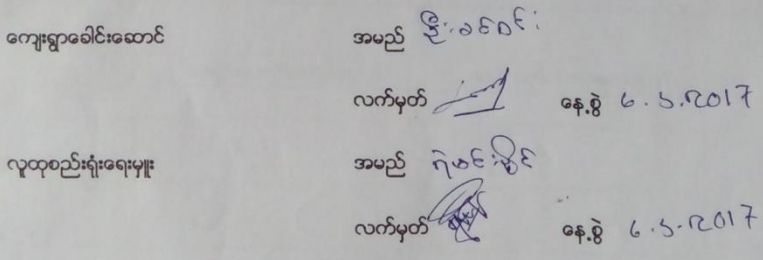 ကျေးရွာခေါင်းဆောင် အမည် ဦးခင်ဝင်း
လက်မှတ် နေ့စွဲ 6.5.2017
လူထုစည်းရုံးရေးမှူး အမည်
လက်မှတ် နေ့စွဲ 6.5.2017